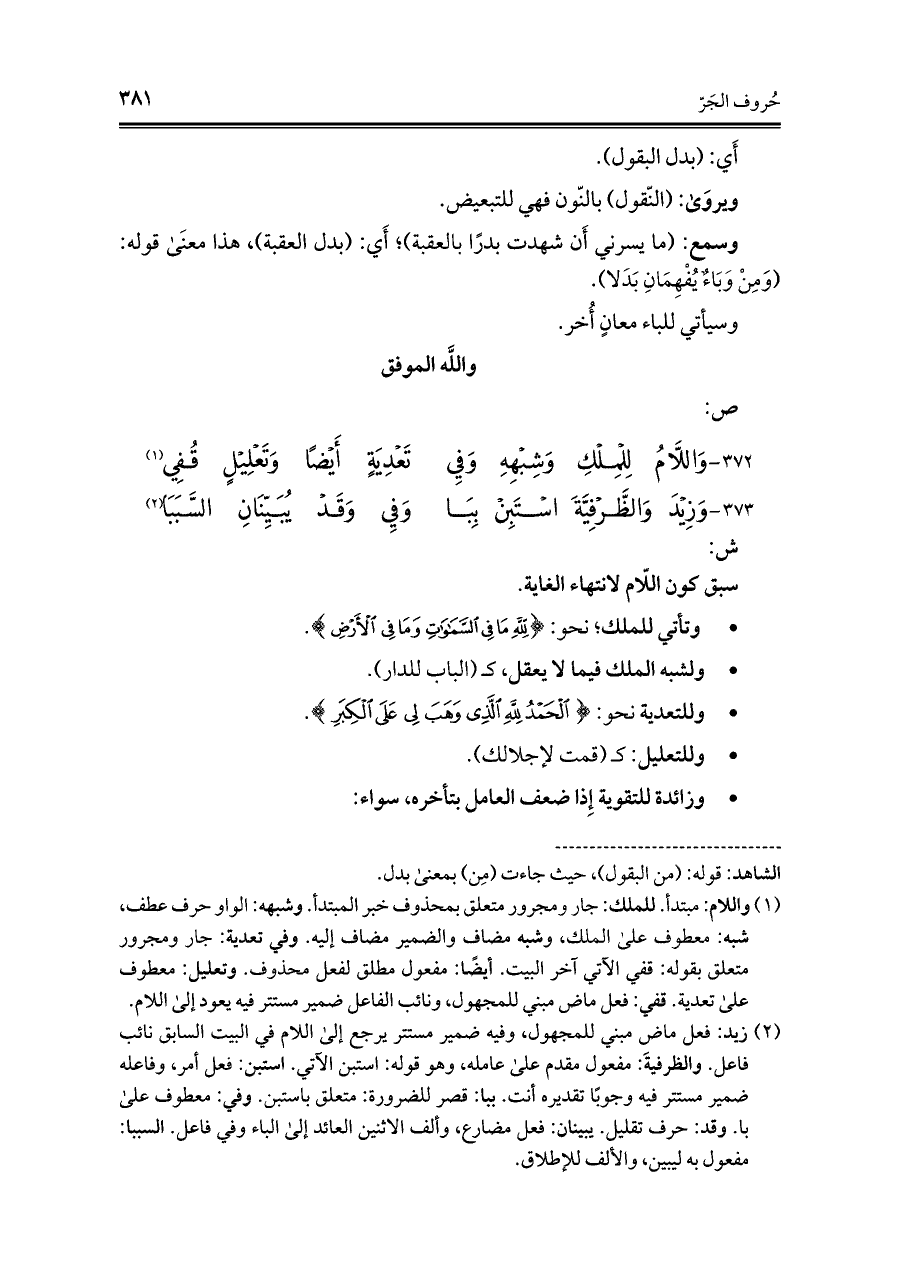 حُروف الجَرّ ٣٨١
أَي: (بدل البقول).
ويروَىٰ: (النّقول) بالنّون فهي للتبعيض.
وسمع: (ما يسرني أَن شهدت بدرًا بالعقبة)؛ أَي: (بدل العقبة)، هذا معنَىٰ قوله:
(وَمِنْ وَبَاءٌ يُفْهِمَانِ بَدَلا).
وسيأتي للباء معانٍ أُخر.
واللَّه الموفق
ص:
٣٧٢-وَاللَّامُ لِلْمِلْكِ وَشِبْهِهِ وَفِي تَعْدِيَةٍ أَيْضًا وَتَعْلِيْلٍ قُفِي(١)
٣٧٣-وَزِيْدَ وَالظَّرْفِيَّةَ اسْتَبِنْ بِبَا وَفِي وَقَدْ يُبَيِّنَانِ السَّبَبَا(٢)
ش:
سبق كون اللّام لانتهاء الغاية.
• وتأتي للملك؛ نحو: ﴿لِلَّهِ مَا فِي السَّمَٰوَٰتِ وَمَا فِي ٱلْأَرْضِ﴾.
• ولشبه الملك فيما لا يعقل، كـ (الباب للدار).
• وللتعدية نحو: ﴿ٱلْحَمْدُ لِلَّهِ ٱلَّذِى وَهَبَ لِى عَلَى ٱلْكِبَرِ﴾.
• وللتعليل: كـ (قمت لإجلالك).
• وزائدة للتقوية إِذا ضعف العامل بتأخره، سواء:
الشاهد: قوله: (من البقول)، حيث جاءت (مِن) بمعنىٰ بدل.
(١) واللام: مبتدأ. للملك: جار ومجرور متعلق بمحذوف خبر المبتدأ. وشبهه: الواو حرف عطف،
شبه: معطوف علىٰ الملك، وشبه مضاف والضمير مضاف إليه. وفي تعدية: جار ومجرور
متعلق بقوله: قفي الآتي آخر البيت. أيضًا: مفعول مطلق لفعل محذوف. وتعليل: معطوف
علىٰ تعدية. قفي: فعل ماض مبني للمجهول، ونائب الفاعل ضمير مستتر فيه يعود إلىٰ اللام.
(٢) زيد: فعل ماض مبني للمجهول، وفيه ضمير مستتر يرجع إلىٰ اللام في البيت السابق نائب
فاعل. والظرفيةَ: مفعول مقدم علىٰ عامله، وهو قوله: استبن الآتي. استبن: فعل أمر، وفاعله
ضمير مستتر فيه وجوبًا تقديره أنت. ببا: قصر للضرورة: متعلق باستبن. وفي: معطوف علىٰ
با. وقد: حرف تقليل. يبينان: فعل مضارع، وألف الاثنين العائد إلىٰ الباء وفي فاعل. السببا:
مفعول به ليبين، والألف للإطلاق.